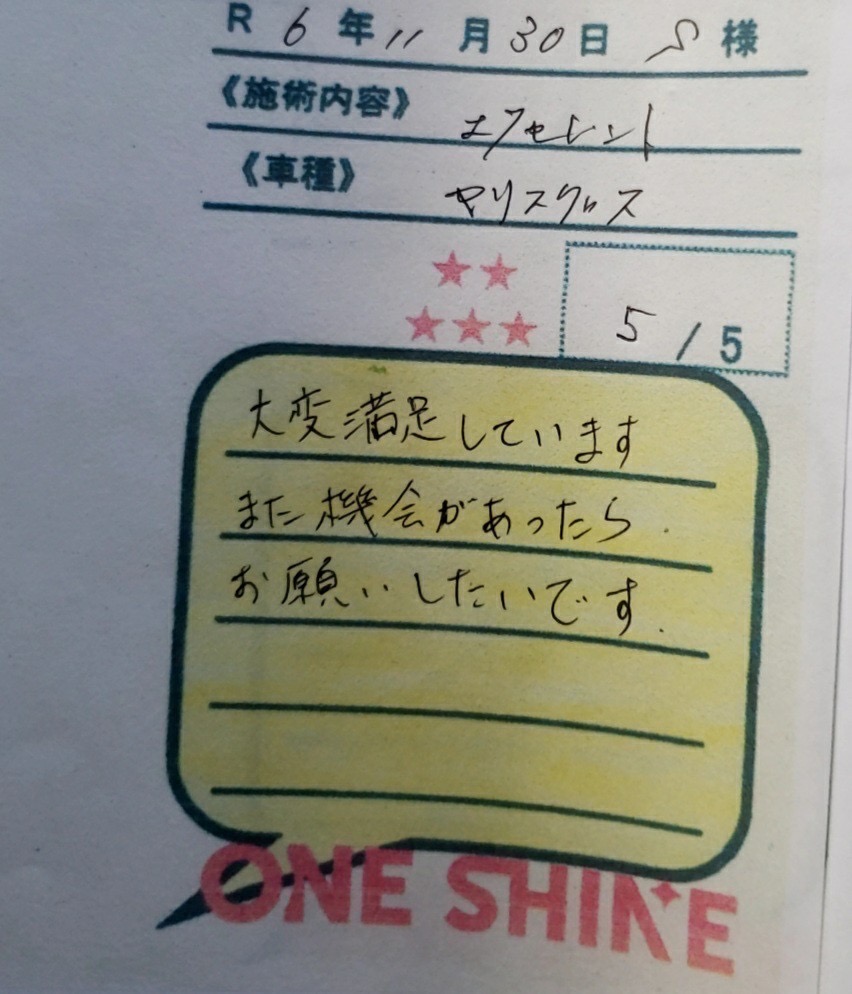 R 6年 11月30日 S様
《施術内容》 エクセレント
《車種》 ヤリスクロス
5/5
大変満足しています
また機会があったら.
お願いしたいです.
ONE SHINE